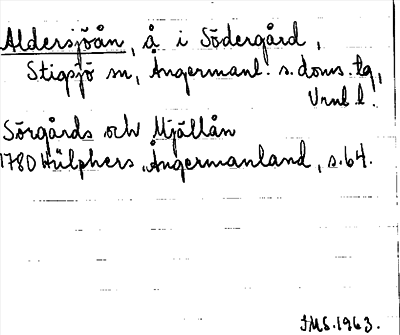 Aldersjöån, å i Södergård,
Stigsjö sn, Ångermanl. s. doms. tg,
Vrnl l.
Sörgårds och Mjällån
1780 Hülphers, Ångermanland, s. 64.
IMS. 1963.